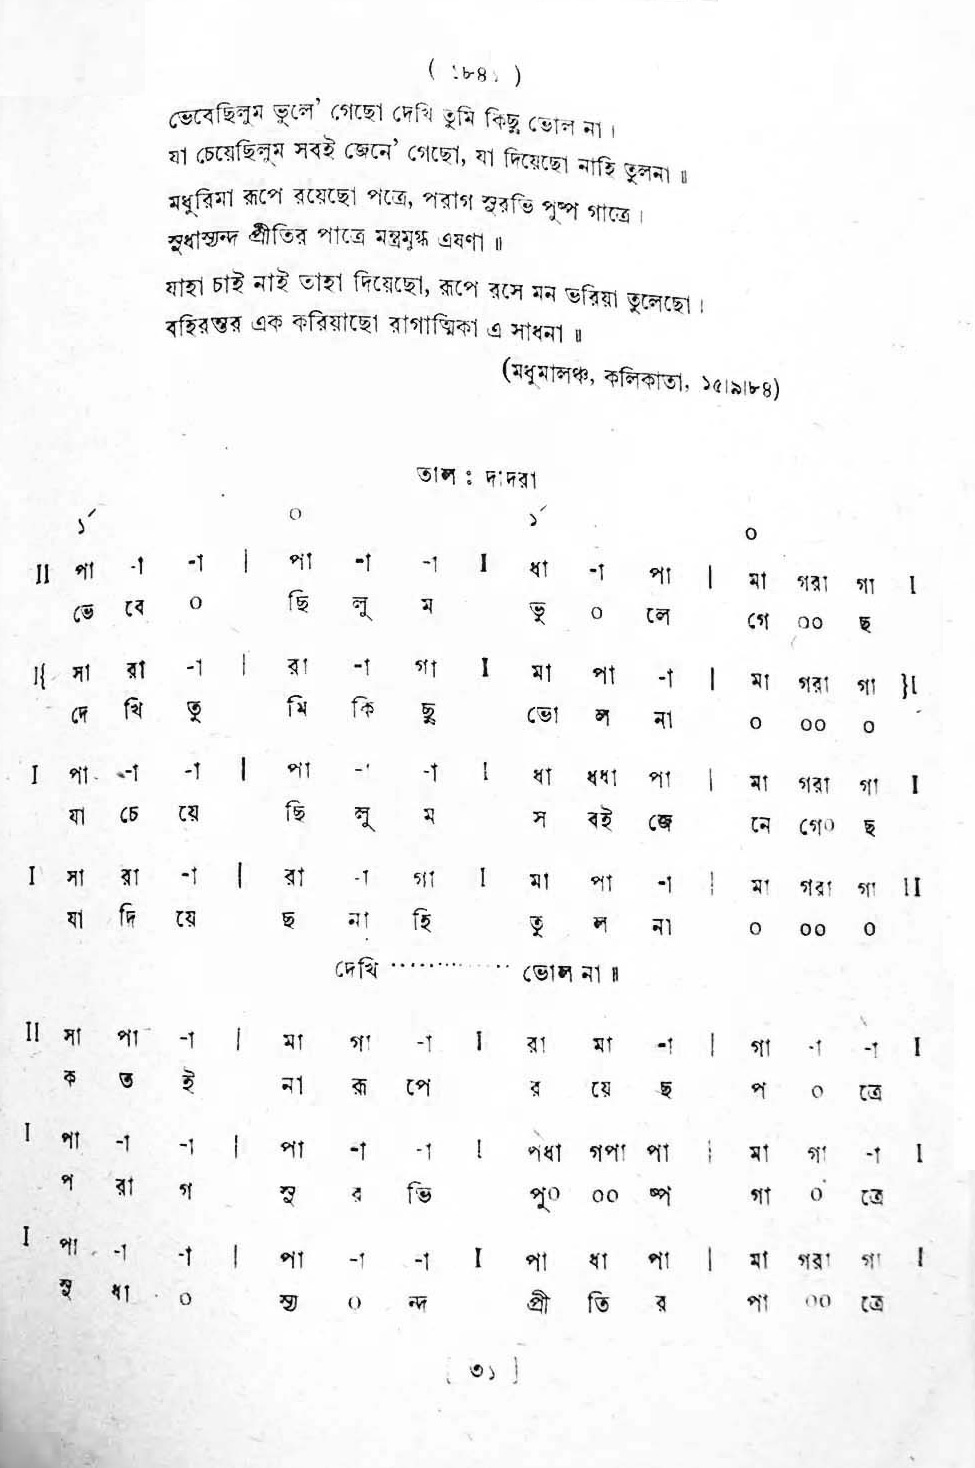 ( ১৮৪১ )
ভেবেছিলুম ভুলে' গেছো দেখি তুমি কিছু ভোল না।
যা চেয়েছিলুম সবই জেনে' গেছো, যা দিয়েছো নাহি তুলনা॥
মধুরিমা রূপে রয়েছো পত্রে, পরাগ সুরভি পুষ্প গাত্রে।
সুধাস্যন্দ প্রীতির পাত্রে মন্ত্রমুগ্ধ এষণা॥
যাহা চাই নাই তাহা দিয়েছো, রূপে রসে মন ভরিয়া তুলেছো।
বহিরন্তর এক করিয়াছো রাগাত্মিকা এ সাধনা॥
(মধুমালঞ্চ, কলিকাতা, ১৫।৯।৮৪)
তাল : দাদরা
১´ ০ ১´ ০
II পা -া -া | পা -া -া I ধা -া পা | মা গরা গা I
ভে বে ০ ছি লু ম ভু ০ লে গে ০০ ছ
I{ সা রা -া | রা -া গা I মা পা -া | মা গরা গা }I
দে খি তু মি কি ছু ভো ল না ০ ০০ ০
I পা -া -া | পা -া -া I ধা ধধা পা | মা গরা গা I
যা চে য়ে ছি লু ম স বই জে নে গে০ ছ
I সা রা -া | রা -া গা I মা পা -া | মা গরা গা II
যা দি য়ে ছ না হি তু ল না ০ ০০ ০
দেখি ............. ভোল না॥
II সা পা -া | মা গা -া I রা মা -া | গা -া -া I
ক ত ই না রূ পে র য়ে ছ প ০ ত্রে
I পা -া -া | পা -া -া I পধা গপা পা | মা গা -া I
প রা গ সু র ভি পু০ ০০ ষ্প গা ০ ত্রে
I পা -া -া | পা -া -া I পা ধা পা | মা গরা গা I
সু ধা ০ স্য ০ ন্দ প্রী তি র পা ০০ ত্রে
[ ৩১ ]